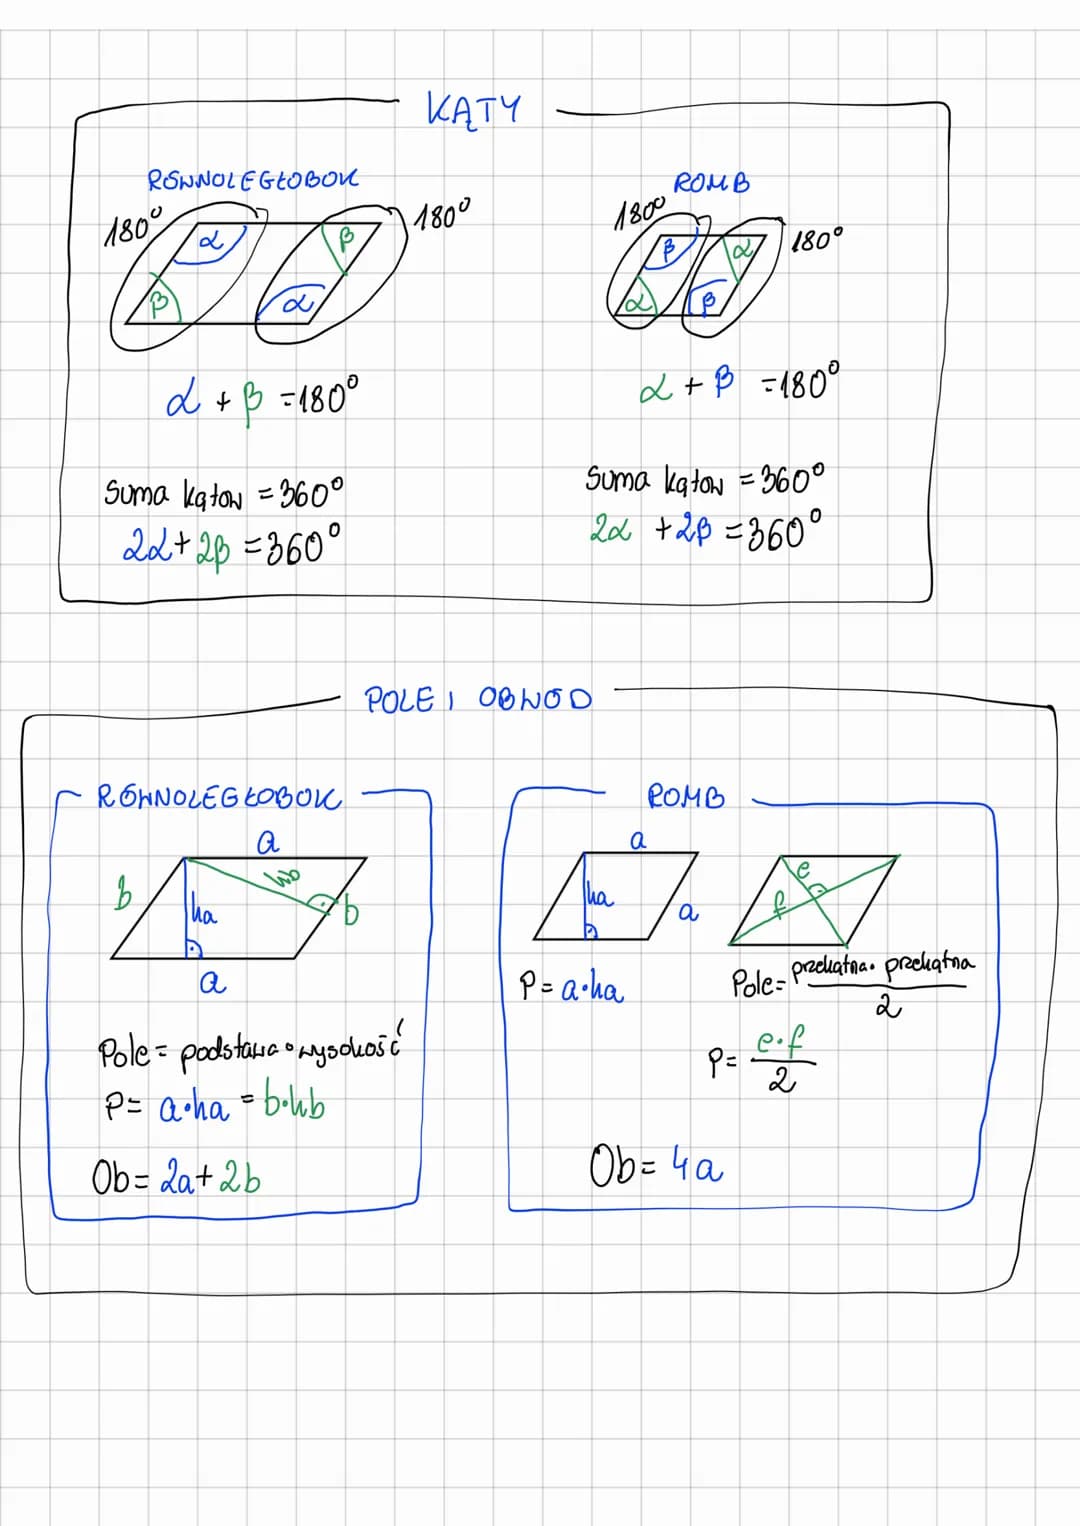 KĄTY
RÓWNOLEGŁOBOK
180° α β 180°
β α
α + β = 180°
Suma kątow = 360°
2α + 2β = 360°
ROMB
180° β α 180°
α β
α + β = 180°
Suma kątow = 360°
2α + 2β = 360°
POLE I OBWÓD
RÓWNOLEGŁOBOK
a
b ha hb b
a
Pole = podstawa • wysokość
P = a•ha = b•hb
Ob = 2a + 2b
ROMB
a
ha a
P = a•ha
e
f
Pole = przekątna • przekątna
2
P = e•f
2
Ob = 4a